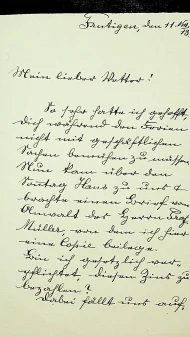 Frutigen, den 11. Aug.
Mein lieber Vetter!
So sehr hatte ich gehofft,
Dich während den Ferien
nicht mit geschäftlichen
Sachen bemühen zu müssen.
Nun kam über den
Sonntag Hans zu uns &
brachte einen Brief von
Anwalt des Herrn Prof.
Müller, von dem ich hier
eine Copie beilege.
Bin ich gesetzlich ver-
pflichtet, diesen Zins zu
bezahlen?
Dabei fällt uns auf,